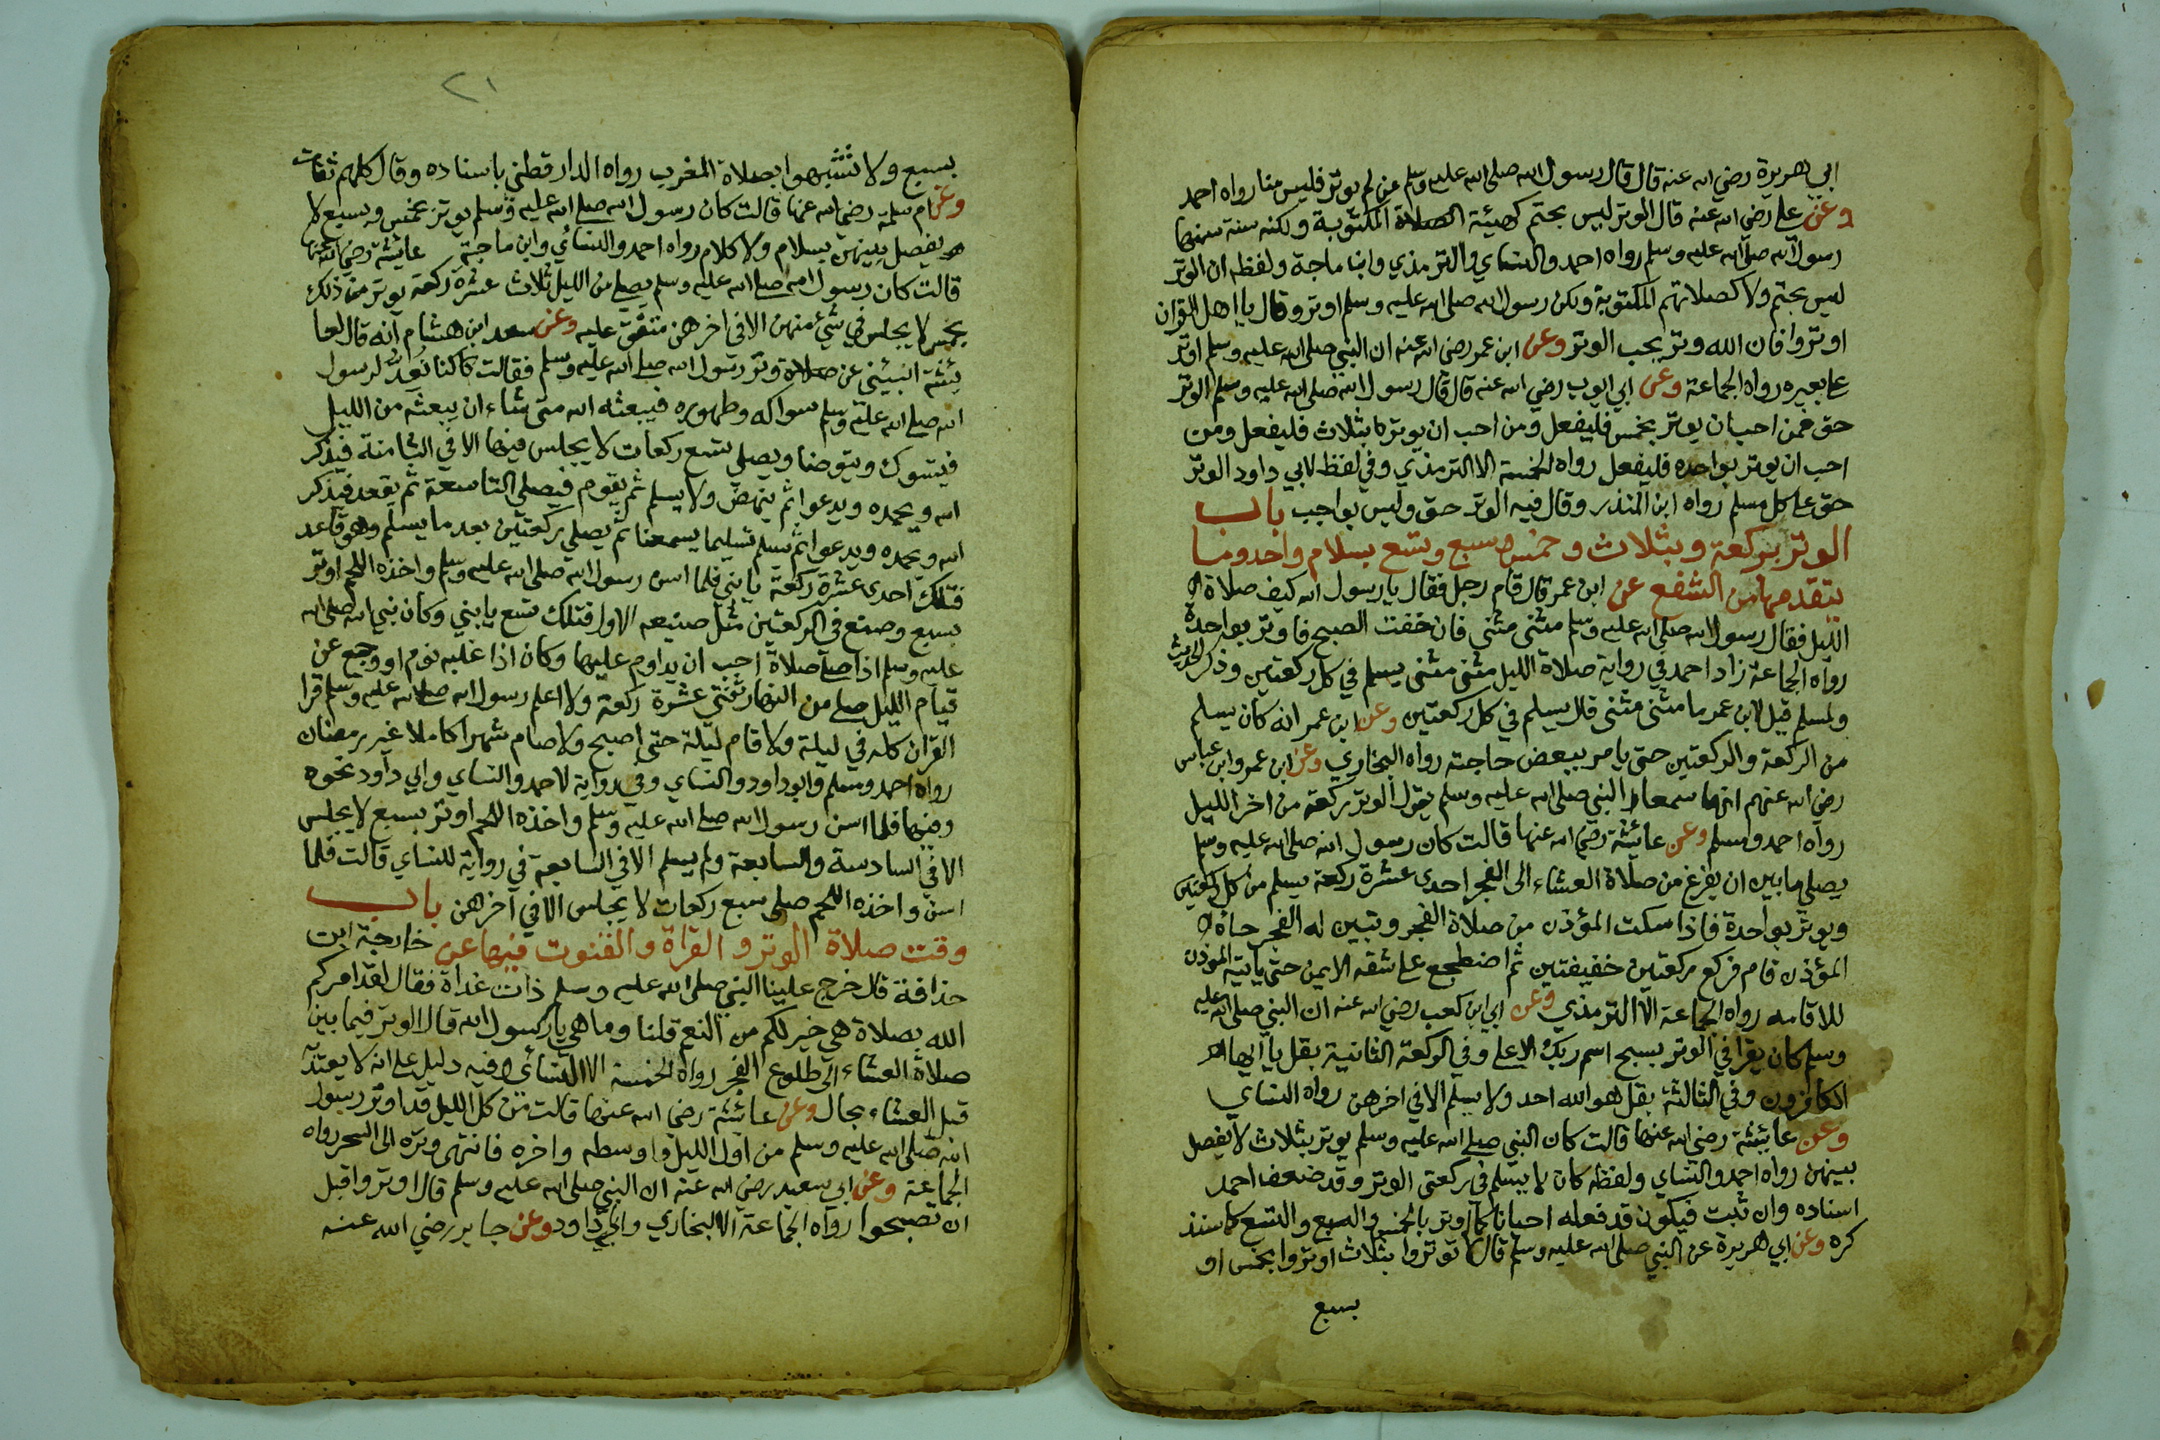 ابي هريرة رضي الله عنه قال قال رسول الله صلى الله عليه وسلم من لم يوتر فليس منا رواه احمد
وعن علي رضي الله عنه قال الوتر ليس بحتم كهيئة الصلاة المكتوبة ولكنه سنة سنها
رسول الله صلى الله عليه وسلم رواه احمد والنساي والترمذي وابنا ماجة ولفظه ان الوتر
ليس بحتم ولا كصلاتهم المكتوبة ولكن رسول الله صلى الله عليه وسلم اوتر وقال يا اهل القران
اوتروا فان الله وتر يحب الوتر وعن ابن عمر رضي الله عنه ان النبي صلى الله عليه وسلم اوتر
على بعيره رواه الجماعة وعن ابي ايوب رضي الله عنه قال قال رسول الله صلى الله عليه وسلم الوتر
حق فمن احب ان يوتر بخمس فليفعل ومن احب ان يوتر بثلاث فليفعل ومن
احب ان يوتر بواحده فليفعل رواه الخمسة الا الترمذي وفي لفظ لابي داود الوتر
حق على كل مسلم رواه ابن المنذر وقال فيه الوتر حق وليس بواجب باب
الوتر بركعة وبثلاث وخمس وسبع وتسع بسلام واحد وما
يتقدمها من الشفع عن ابن عمر قال قام رجل فقال يا رسول الله كيف صلاة
الليل فقال رسول الله صلى الله عليه وسلم مثنى مثنى فان خفت الصبح فاوتر بواحدة
رواه الجماعة زاد احمد في رواية صلاة الليل مثنى مثنى يسلم في كل ركعتين وذكر الحديث
ولمسلم قيل لابن عمر ما مثنى مثنى قال يسلم في كل ركعتين وعن ابن عمر انه كان يسلم
من الركعة والركعتين حتى يامر ببعض حاجته رواه البخاري وعن ابن عمر وابن عباس
رضي الله عنهم انهما سمعا النبي صلى الله عليه وسلم يقول الوتر ركعة من اخر الليل
رواه احمد ومسلم وعن عائشة رضي الله عنها قالت كان رسول الله صلى الله عليه وسلم
يصلي ما بين ان يفرغ من صلاة العشاء الى الفجر احدى عشرة ركعة يسلم من كل ركعتين
ويوتر بواحدة فاذا سكت المؤذن من صلاة الفجر وتبين له الفجر جاه
المؤذن قام فركع ركعتين خفيفتين ثم اضطجع على شقه الايمن حتى ياتيه المؤذن
للاقامه رواه الجماعة الا الترمذي وعن ابي ابن كعب رضي الله عنه ان النبي صلى الله عليه
وسلم كان يقرا في الوتر بسبح اسم ربك الاعلى وفي الركعة الثانية بقل يا ايها
الكافرون وفي الثالثة بقل هو الله احد ولا يسلم الا في اخرهن رواه النساي
وعن عايشة رضي الله عنها قالت كان النبي صلى الله عليه وسلم يوتر بثلاث لا يفصل
بينهن رواه احمد والنساي ولفظه كان لا يسلم في ركعتي الوتر وقد ضعف احمد
اسناده وان ثبت فيكون قد فعله احيانا كما اوتر بالخمس والسبع والتسع كما سنذ
كره وعن ابي هريرة عن النبي صلى الله عليه وسلم قال لا توتروا بثلاث اوتروا بخمس او
بسبع
٢١
بسبع ولا تشبهوا بصلاة المغرب رواه الدارقطني باسناده وقال كلهم ثقات
وعن ام سلمة رضي الله عنها قالت كان رسول الله صلى الله عليه وسلم يوتر بخمس وبسبع لا
يفصل بينهن بسلام ولا كلام رواه احمد والنسائي وابن ماجة عائشة رضي الله عنها
قالت كان رسول الله صلى الله عليه وسلم يصلي من الليل ثلاث عشرة ركعة يوتر من ذلك
بخمس لا يجلس في شيء منهن الا في اخرهن متفق عليه وعن سعد ابن هشام انه قال لعا
ئشة انبيني عن صلاة وتر رسول الله صلى الله عليه وسلم فقالت كنا نعد لرسول
الله صلى الله عليه وسلم سواكه وطهوره فيبعثه الله متى شاء ان يبعثه من الليل
فيتسوك ويتوضا ويصلي تسع ركعات لا يجلس فيها الا في الثامنة فيذكر
الله ويحمده ويدعوا ثم ينهض ولا يسلم ثم يقوم فيصلي التاسعة ثم يقعد فيذكر
الله ويحمده ويدعوا ثم يسلم تسليما يسمعنا ثم يصلي ركعتين بعد ما يسلم وهو قاعد
فتلك احدى عشرة ركعة يا بني فلما اسن رسول الله صلى الله عليه وسلم واخذه اللحم اوتر
بسبع وصنع في الركعتين مثل صنيعه الاول فتلك تسع يا بني وكان نبي الله صلى الله
عليه وسلم اذا صلى صلاة احب ان يداوم عليها وكان اذا غلبه نوم او وجع عن
قيام الليل صلى من النهار ثنتي عشرة ركعة ولا اعلم رسول الله صلى الله عليه وسلم قرا
القران كله في ليلة ولا قام ليلة حتى اصبح ولا صام شهرا كاملا غير رمضان
رواه احمد ومسلم وابو داود والنساي وفي رواية لاحمد والنساي وابي داود نحوه
وفيها فلما اسن رسول الله صلى الله عليه وسلم واخذه اللحم اوتر بسبع لا يجلس
الا في السادسة والسابعة ولم يسلم الا في السابعة في رواية للنساي قالت فلما
اسن واخذه اللحم صلى سبع ركعات لا يجلس الا في آخرهن باب
وقت صلاة الوتر والقراة والقنوت فيها عن خارجة ابن
حذافة قال خرج علينا النبي صلى الله عليه وسلم ذات غداة فقال لقد امركم
الله بصلاة هي خير لكم من النعم قلنا وما هي يا رسول الله قال الوتر فيما بين
صلاة العشاء الى طلوع الفجر رواه الخمسة الا النسائي وفيه دليل على انه لا يعتد به
قبل العشاء بحال وعن عائشة رضي الله عنها قالت من كل الليل قد اوتر رسول
الله صلى الله عليه وسلم من اول الليل واوسطه واخره فانتهى وتره الى السحر رواه
الجماعة وعن ابي سعيد رضي الله عنه ان النبي صلى الله عليه وسلم قال اوتروا قبل
ان تصبحوا رواه الجماعة الا البخاري وابي داود وعن جابر رضي الله عنه